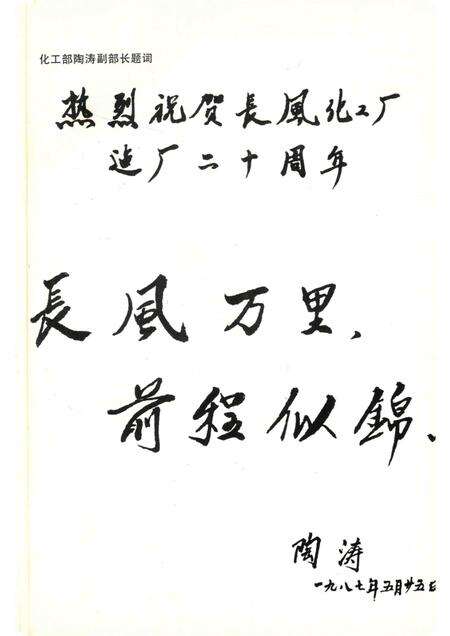 化工部陶涛副部长题词
热烈祝贺長風化工厂
建厂二十周年
長風万里、
前程似錦、
陶涛
一九八七年五月廿五日